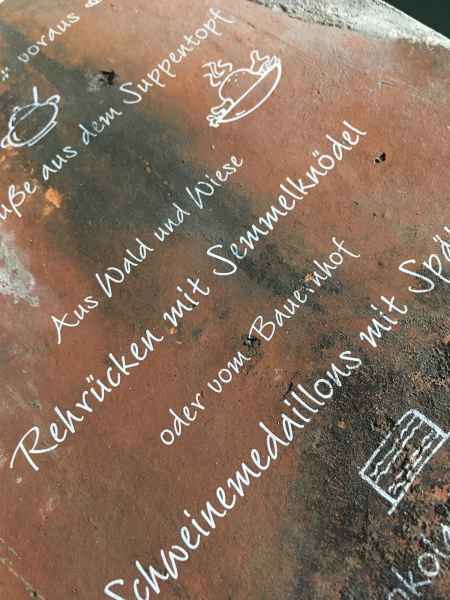 voraus
aus dem Suppentopf
Aus Wald und Wiese
Rehrücken mit Semmelknödel
oder vom Bauernhof
Schweinemedaillons mit Spä